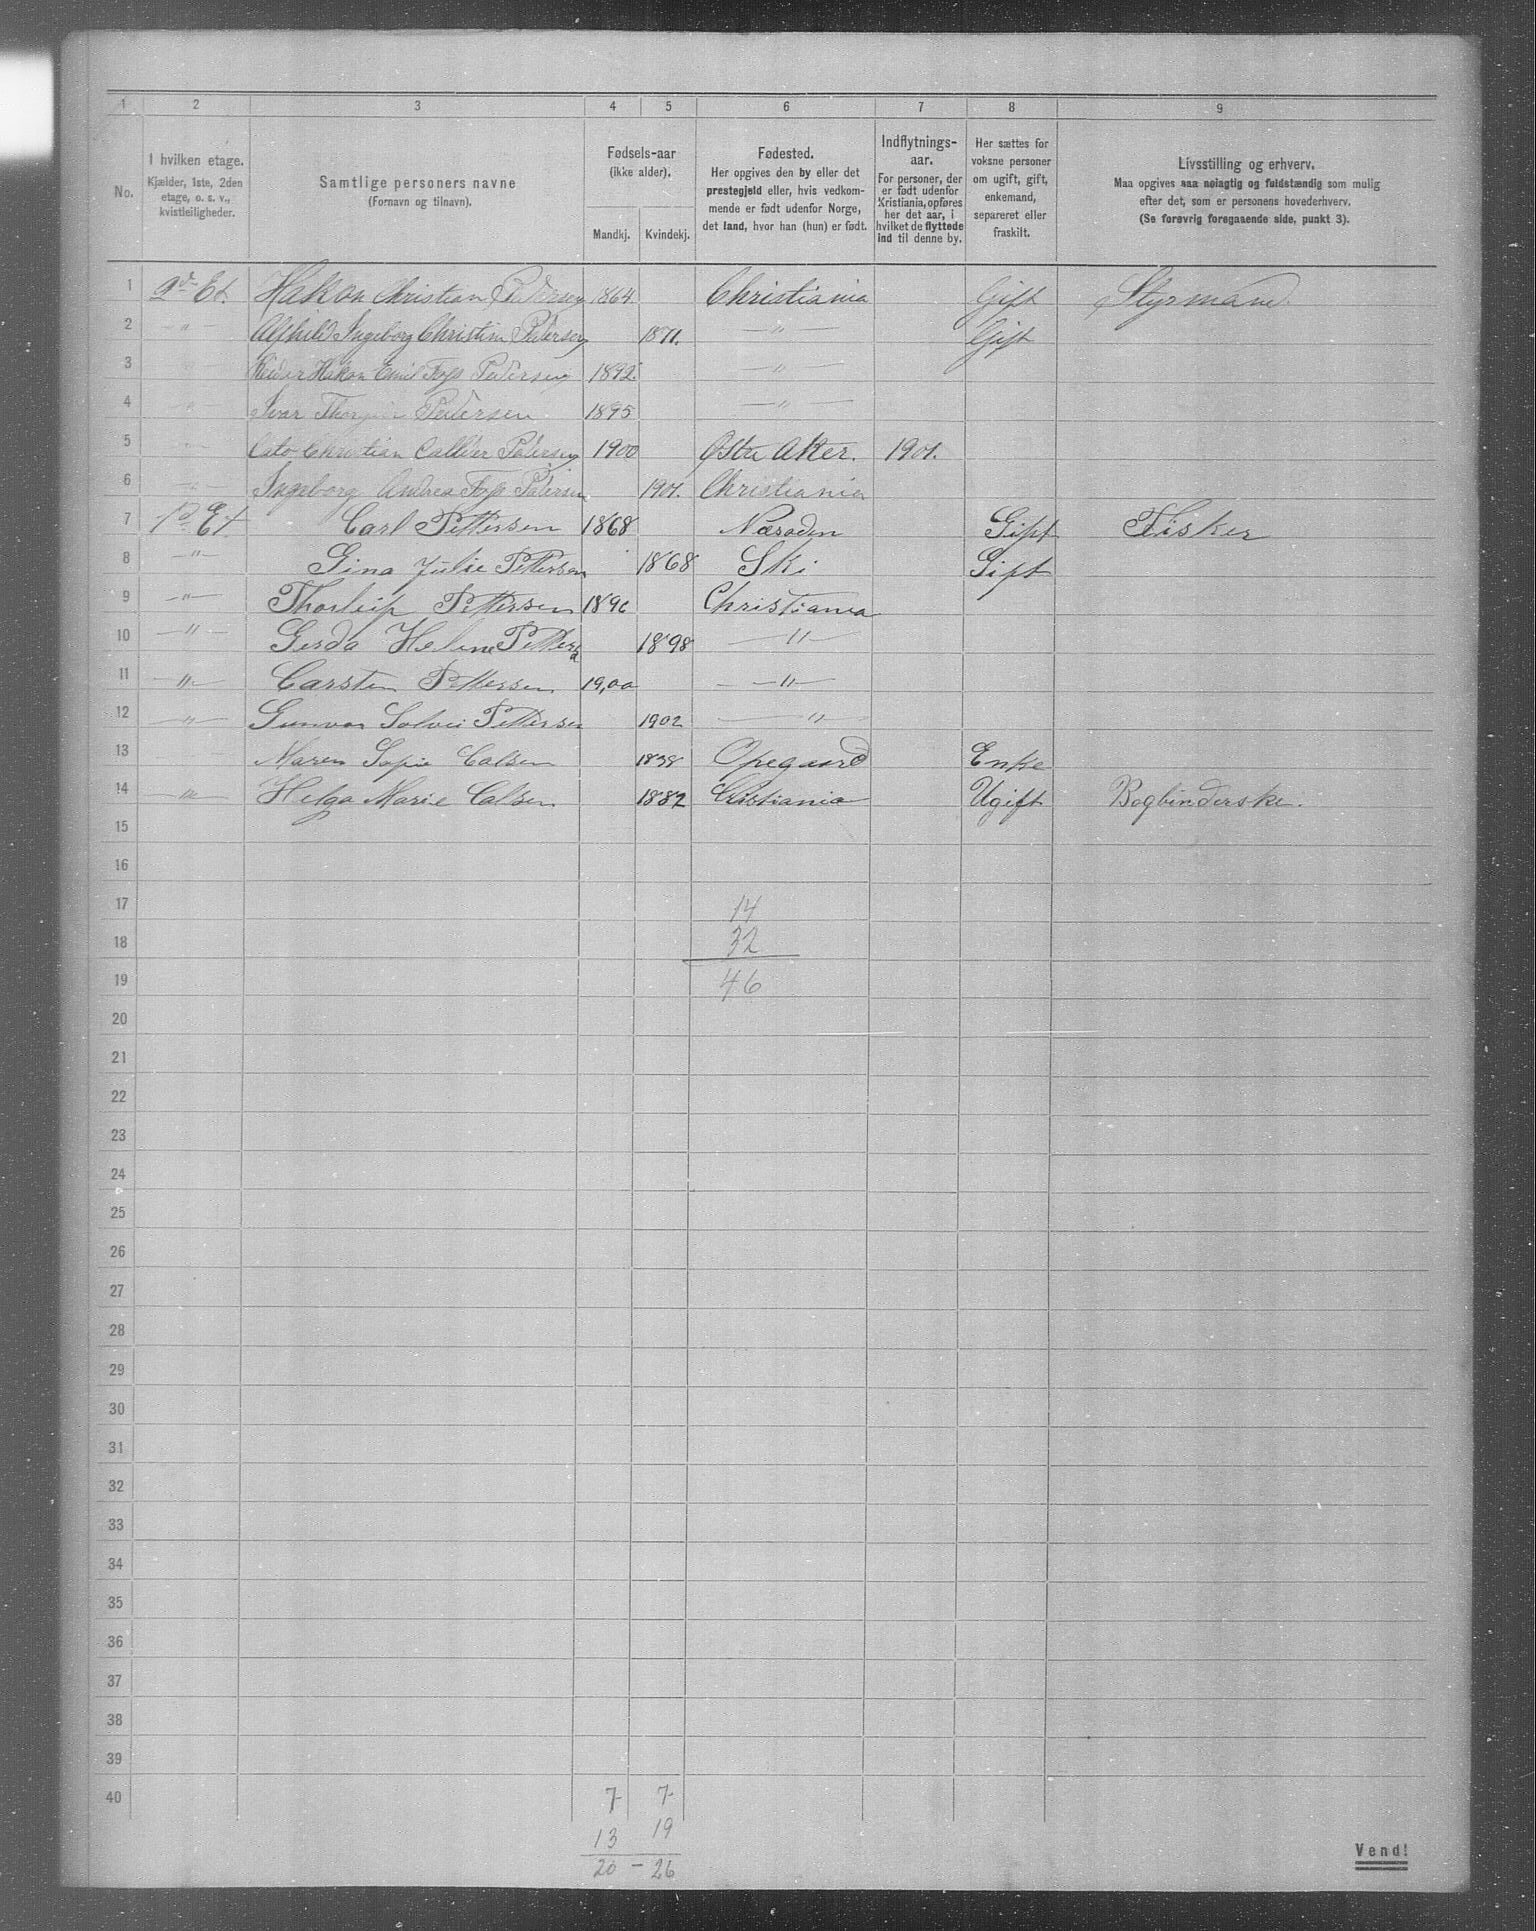 1 2 3 4 5 6 7 8 9
No.
I hvilken etage.
Kjælder, 1ste, 2den
etage, o. s. v.,
kvistleiligheder.
Samtlige personers navne
(Fornavn og tilnavn).
Fødsels-aar
(ikke alder).
Mandkj. Kvindekj.
Fødested.
Her opgives den by eller det
prestegjeld eller, hvis vedkom-
mende er født udenfor Norge,
det land, hvor han (hun) er født.
Indflytnings-
aar.
For personer, der
er født udenfor
Kristiania, opføres
her det aar, i
hvilket de flyttede
ind til denne by.
Her sættes for
voksne personer
om ugift, gift,
enkemand,
separeret eller
fraskilt.
Livsstilling og erhverv.
Maa opgives saa nøiagtig og fuldstændig som mulig
efter det, som er personens hovederhverv.
(Se forøvrig foregaaende side, punkt 3).
1 2d Et. Hakon Christian Pedersen 1864 Christiania Gift Styrmand.
2 " Alfhild Ingeborg Christine Pedersen 1871. " Gift
3 Reidar Hakon Emil Foss Pedersen 1892 "
4 " Ivar Pedersen 1895 "
5 Cato Christian Pedersen 1900 Østre Aker. 1901.
6 " Ingeborg Andrea Foss Pedersen 1901. Christiania
7 Et Carl Pettersen 1868 Næsodden Gift Fisker
8 " Gina Julie Pettersen 1868 Ski Gift
9 " Thorleif Pettersen 1896 Christiania
10 " Gerda Helene Petters 1898 "
11 " Carsten Pettersen 19,00 "
12 " Gunvor Solvei Pettersen 1902 "
13 " Maren Sofie Calsen 1838 Opegaard Enke
14 " Helga Marie Calsen 1882 Cristiania Ugift Bogbinderske.
15
16
17 14
18 32
19 46
20
21
22
23
24
25
26
27
28
29
30
31
32
33
34
35
36
37
38
39
40 7 7
13 19
20 – 26
Vend!